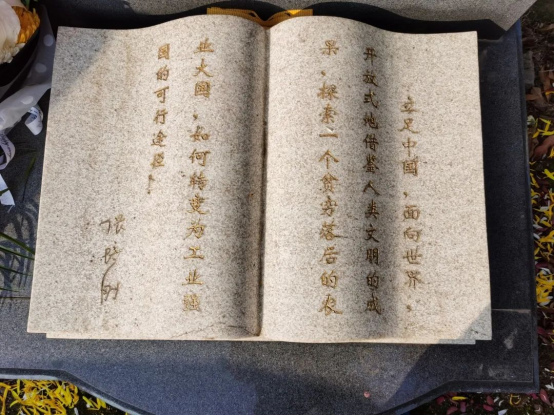 立足中國，面向世界，
开放式地借鉴人类文明的成
果，探索一个贫穷落后的农
业大國，如何转变为工业強
國的可行途徑！
张培刚